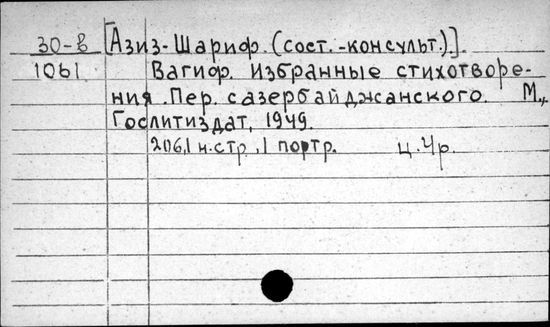 30-в [Азиз-Шариф (сост.-консульт.)].
1061 Вагиф. Избранные стихотворе-
ния. Пер. с азербайджанского. М.,
Гослитиздат, 1949.
206,1 н. стр., 1 портр. ц. 4р.